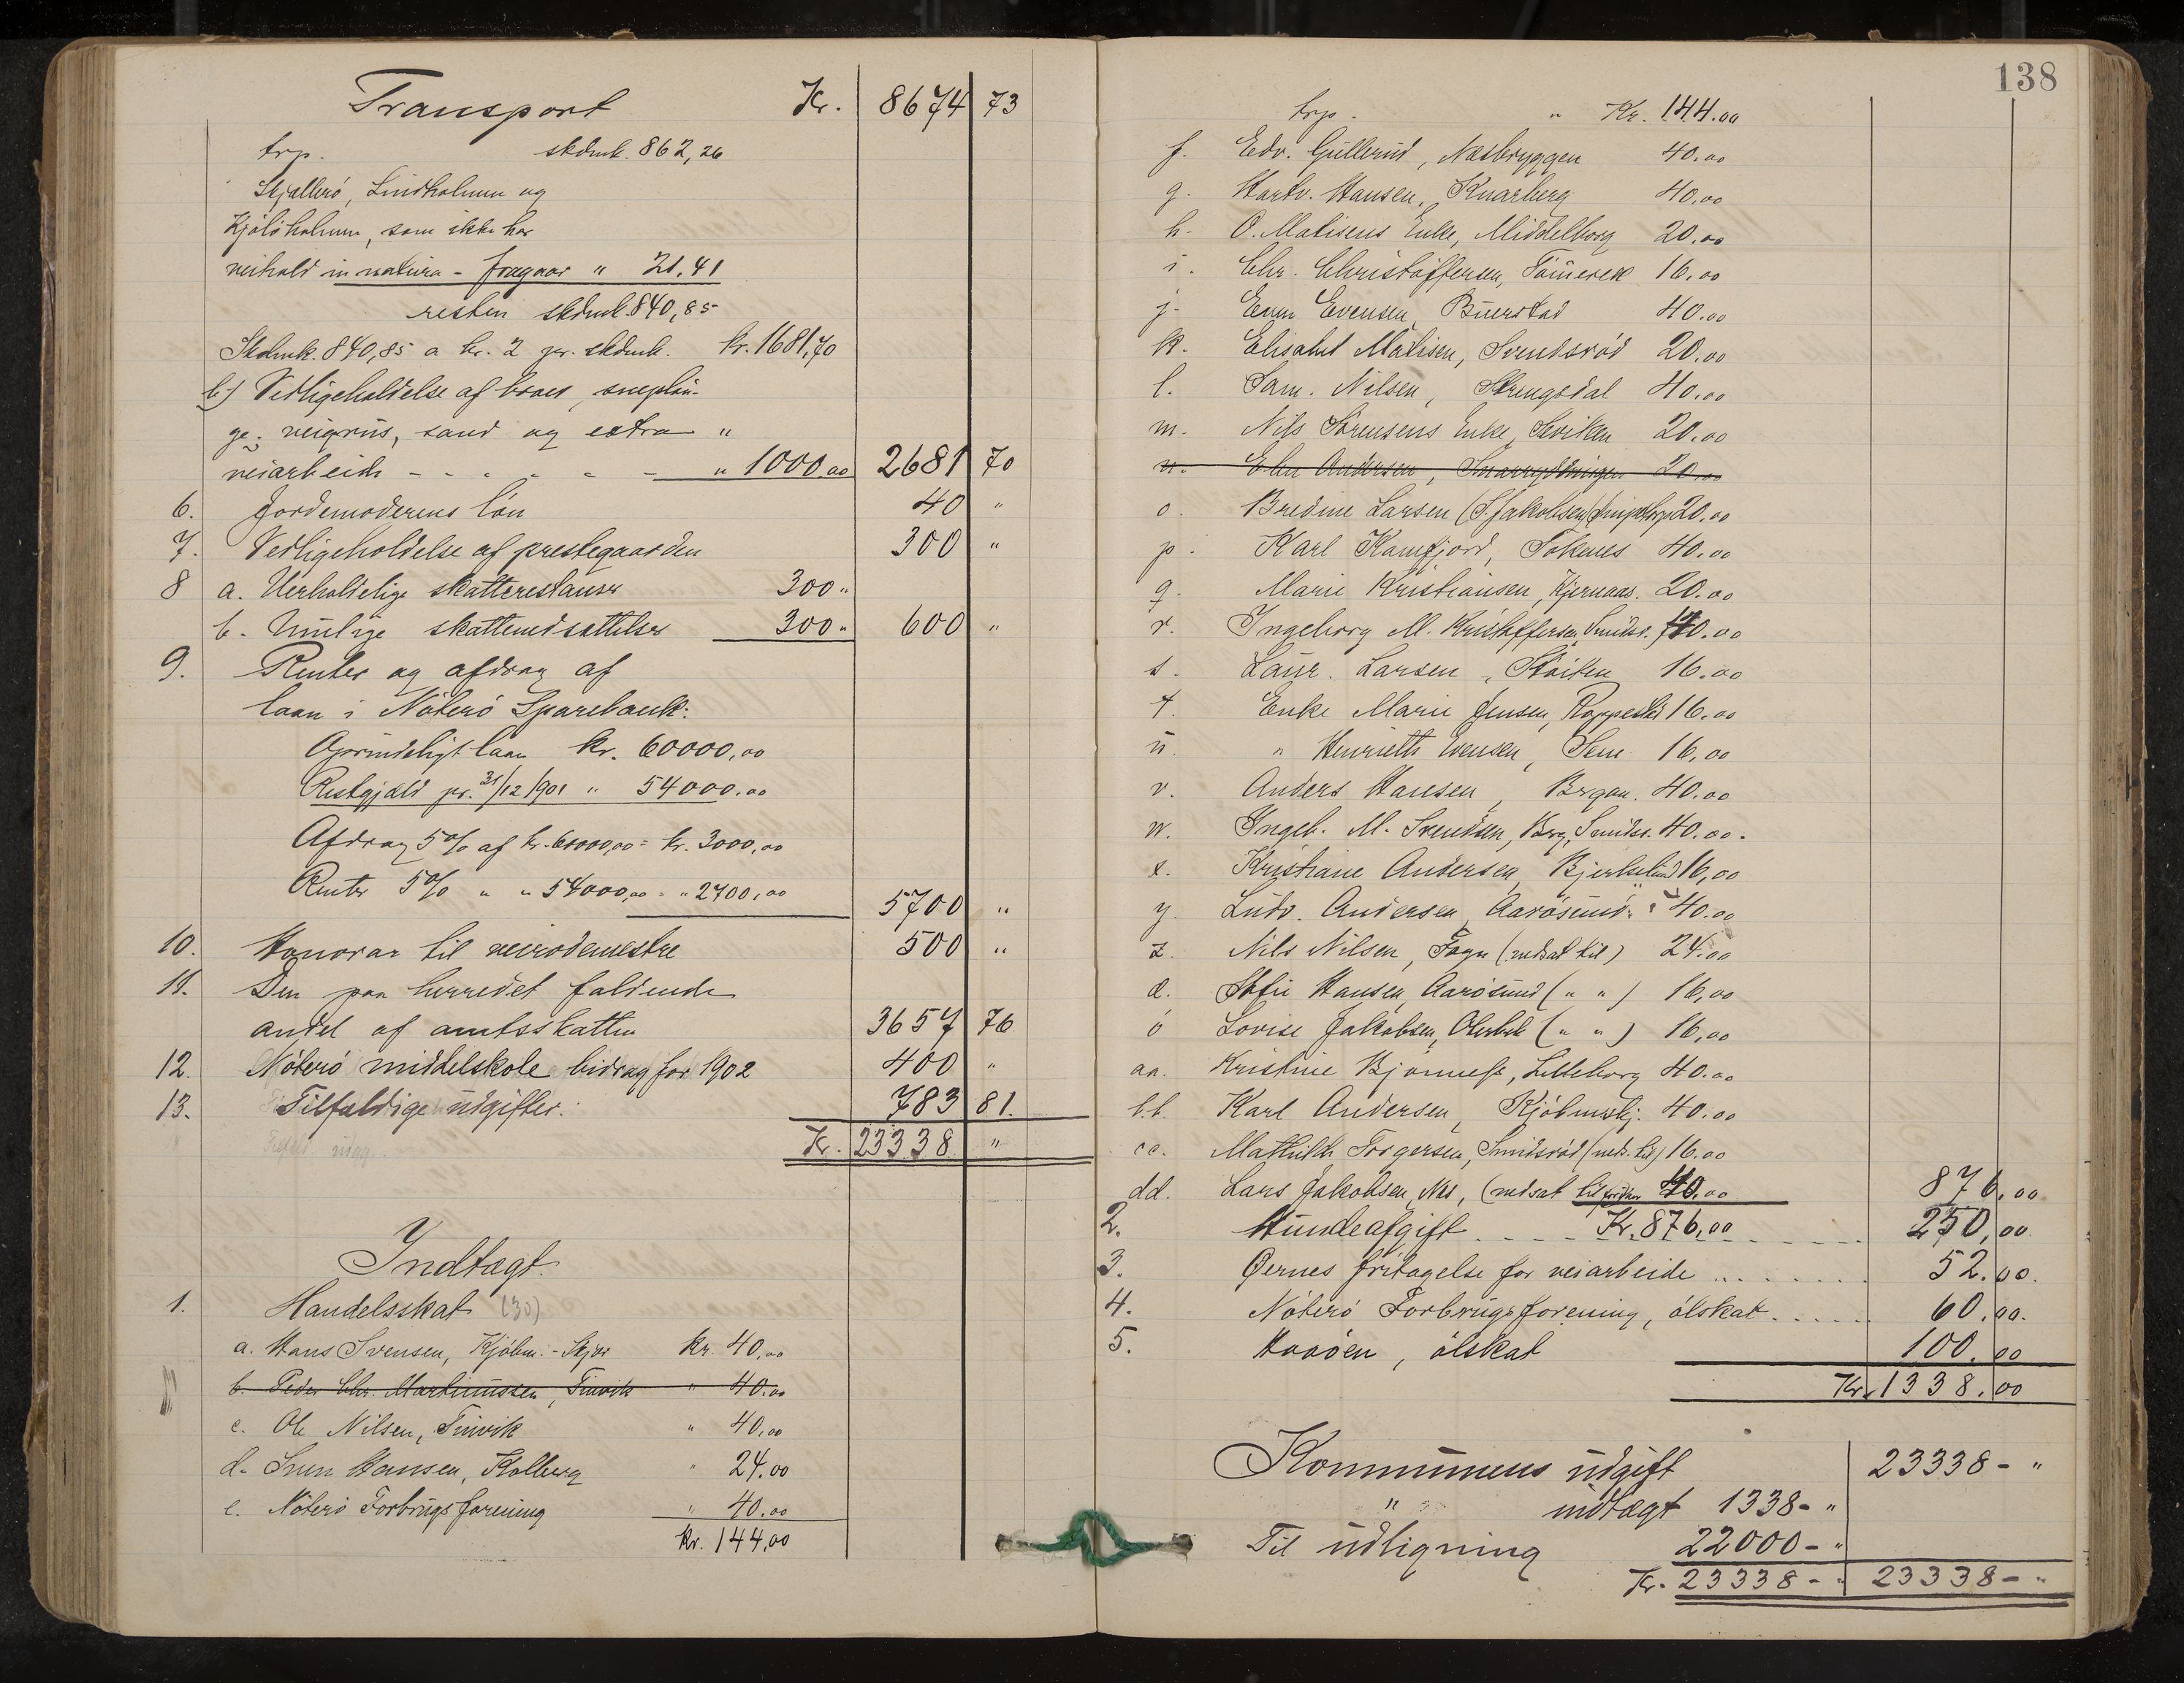 Transport Kr. 8674 73
trp. skdmk. 862,26
Skjallerö, Lindholmen og
Kjölöholmen, som ikke har
veihold in natura - fragaar " 21.41
resten skdmk. 840,85
Skdmk. 840,85 a kr. 2 pr. skdmk. kr. 1681,70
b) Vedligeholdelse af broer, sneplöi-
ge, veigrus, sand og extra "
veiarbeide - - - - - - " 1000.00 2681 70
6. Jordemoderens lön 40 "
7. Vedligeholdelse af prestegaarden 300 "
8 a. Uerholdelige skatterestanser 300 "
b. Mulige skattenedsættelser 300 " 600 "
9. Renter og afdrag af
laan i Nöterö Sparebank:
Oprindeligt laan kr. 60000,00
Restgjæld pr. 31/12 1901 " 54000.00
Afdrag 5% af kr. 60000,00 = kr. 3000,00
Renter 5% " " 54000,00 = " 2700,00 5700 "
10. Honorar til veirodemestre 500 "
11. Den paa herredet faldende
andel af amtsskatten 3657 76
12. Nöterö middelskole bidrag for 1902 400 "
13. Tilfældige udgifter. 783 81.
Kr. 23338 "
Indtægt.
1. Handelsskat (30)
a. Hans Svensen, Kjöbm.-Skjær kr. 40,00
b. Peder Chr. Martinussen, Tinvik " 40.00
c. Ole Nilsen, Tinvik " 40,00
d. Sven Hansen, Kolberg " 24.00
e. Nöterö Forbrugsforening " 40.00
kr. 144,00
138
trp. " Kr. 144.00
f. Edv. Gullerud, Næsbryggen 40.00
g. Hartv. Hansen, Knarberg 40,00
h. O. Matisens Enke, Middelborg 20.00
i. Chr. Christoffersen, 16.00
j. Even Evensen, Buerstad 40.00
k. Elisabet Matisen, Svendsröd 20.00
l. Sam. Nilsen, Strengsdal 40.00
m. Nils Sörensens Enke, 20.00
n. Andersen, 20.00
o. Bredine Larsen (S. Jakobsen) 20.00
p. Karl Kamfjord, Tokenes 40.00
q. Marie Kristiansen, Kjernaas. 20.00
r. Ingeborg M. Kristoffersen, Smidsr. 40.00
s. Laur. Larsen, Stöiten 16.00
t. Enke Marie Jensen, 16.00
u. " Henriette Evensen, Sem 16,00
v. Anders Hansen, Bergan. 40.00
w. Ingeb. M. Svendsen, Berg, Smidsr. 40.00.
x. Kristiane Andersen, Bjerkelund 16,00
y. Ludv. Andersen, Aarösund 40.00
z. Nils Nilsen, Fogn (nedsat til) 24.00
æ. Sofie Hansen, Aarösund (" ") 16,00
ö Lovise Jakobsen, (" ") 16,00
aa. Kristine Bjönness, Lilleborg 40.00
b.b. Karl Andersen, Kjöbmskj. 40.00
cc. Mathilde Torgersen, Smidsröd (neds. til) 16.00
dd. Lars Jakobsen, Nes, (nedsat til 40,00 876,00
2. Hundeafgift Kr. 876,00 250,00
3. Öernes fritagelse for veiarbeide 52.00.
4. Nöterö Forbrugsforening, ölskat 60.00.
5. Haaöen, ölskat 100.00
Kr. 1338.00
Kommunens udgift 23338 - "
" indtægt 1338 - "
Til udligning 22000 - "
Kr. 23338 - " 23338 - "